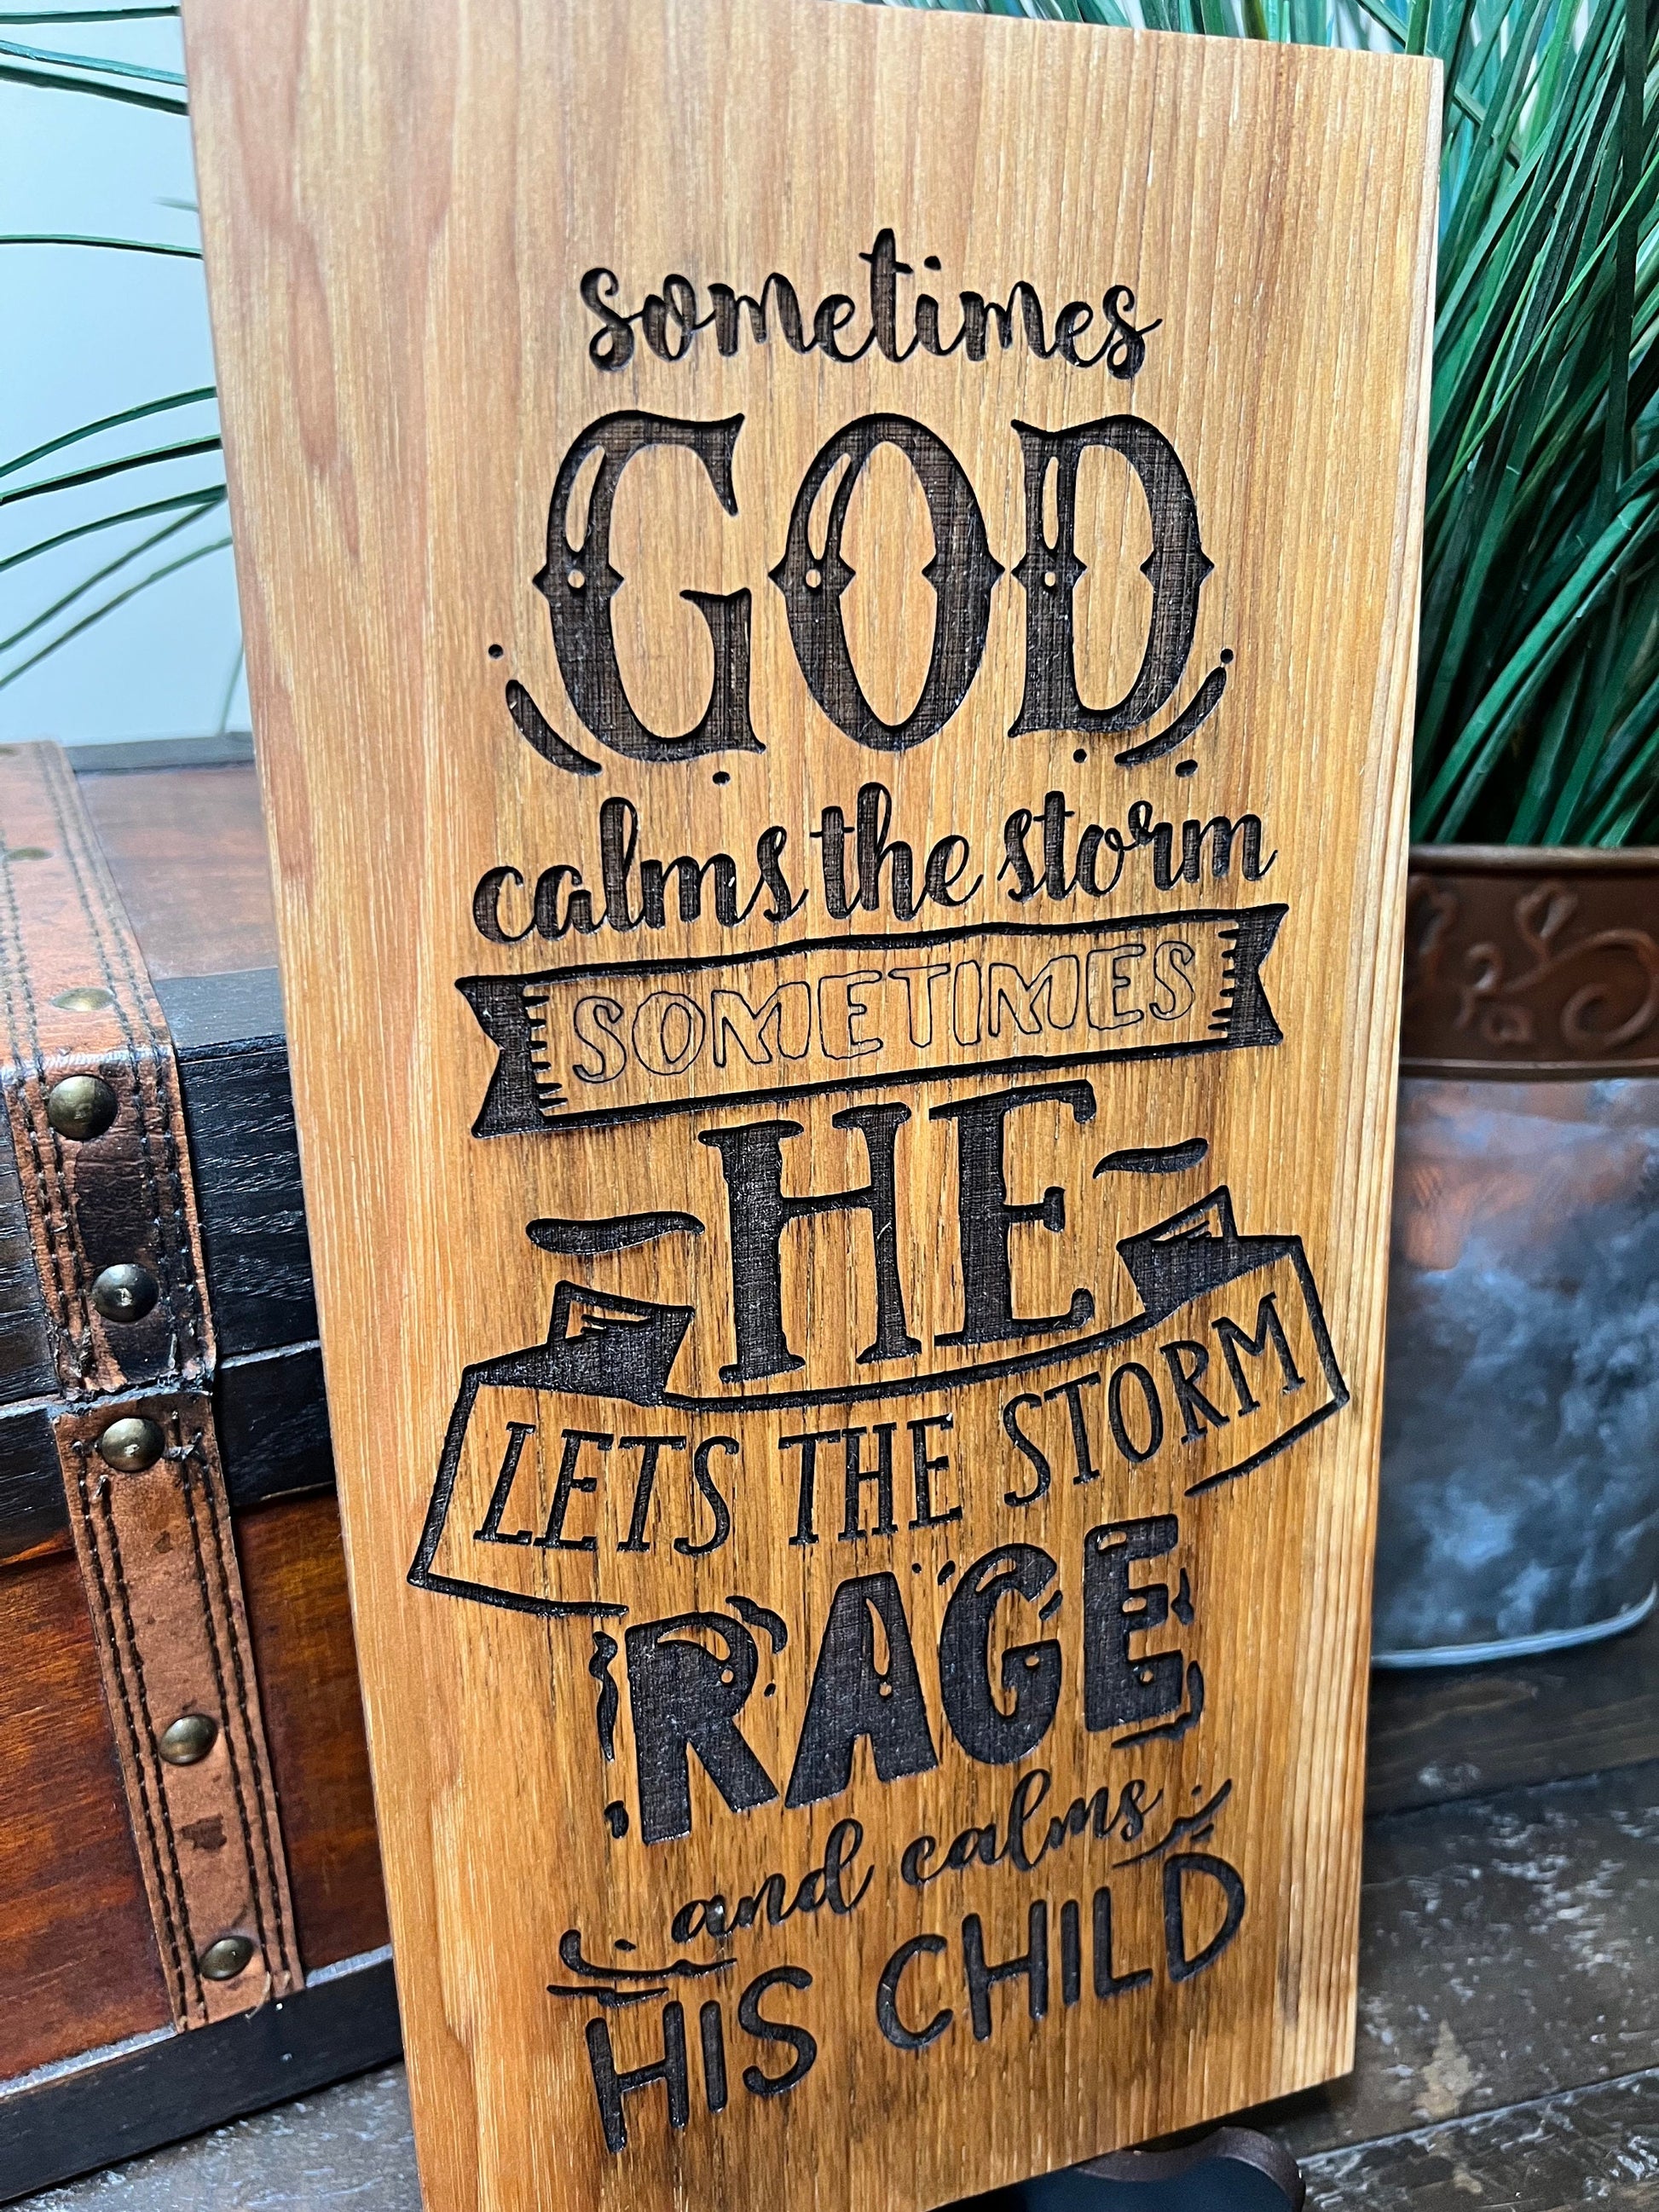 sometimes
GOD
calms the storm
SOMETIMES
HE
LETS THE STORM
RAGE
and calms
HIS CHILD